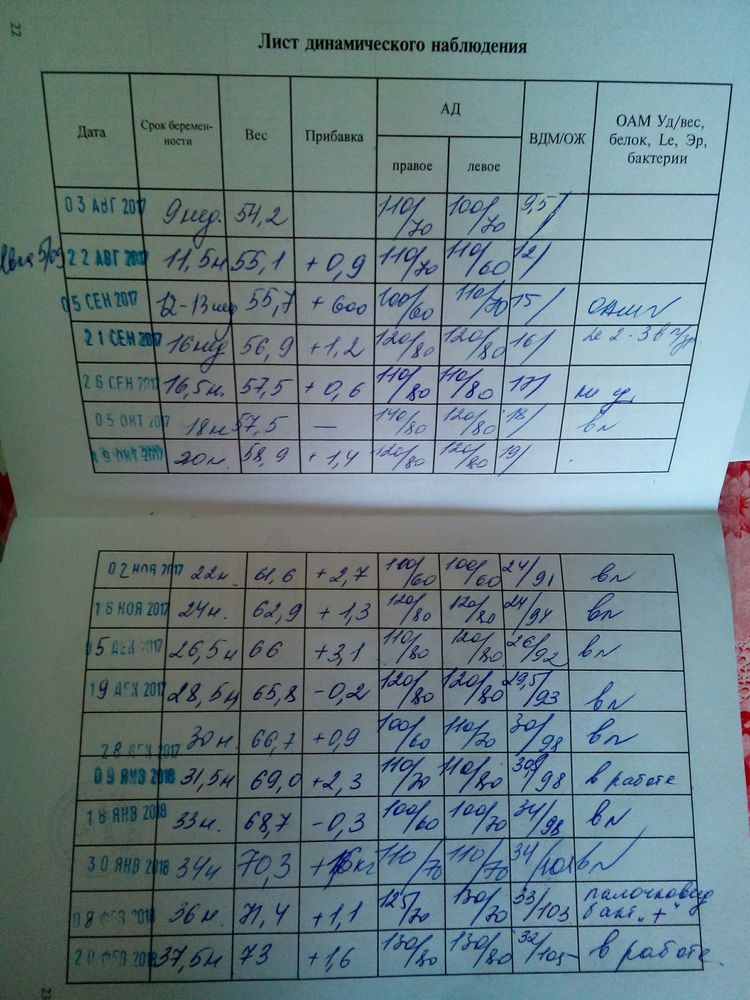 22
Лист динамического наблюдения
Дата Срок беремен-ности Вес Прибавка АД ВДМ/ОЖ ОАМ Уд/вес, белок, Le, Эр, бактерии
правое левое
03 АВГ 2017 9 нед. 54,2 110/70 100/70 9,5/
22 АВГ 2017 11,5н 55,1 +0,9 110/70 110/60 12/
05 СЕН 2017 12-13 нед 55,7 +600 100/60 110/70 15/ ОАМ N
21 СЕН 2017 16 нед 56,9 +1,2 120/80 120/80 16/ Le 2-3 в п/зр.
26 СЕН 2017 16,5н. 57,5 +0,6 110/80 110/80 17/
05 ОКТ 2017 18н 57,5 — 140/80 120/80 18/ в N
19 ОКТ 2017 20н. 58,9 +1,4 120/80 120/80 19/
02 НОЯ 2017 22н. 61,6 +2,7 100/60 100/60 24/91 в N
16 НОЯ 2017 24н. 62,9 +1,3 120/80 120/80 24/94 в N
05 ДЕК 2017 26,5н 66 +3,1 110/80 120/80 26/92 в N
19 ДЕК 2017 28,5н 65,8 -0,2 120/80 120/80 29,5/93 в N
28 ДЕК 2017 30н. 66,7 +0,9 100/60 110/70 30/98 в N
09 ЯНВ 2018 31,5н 69,0 +2,3 110/70 110/80 /98 в работе
18 ЯНВ 2018 33н. 68,7 -0,3 100/60 100/70 34/98 в N
30 ЯНВ 2018 34н 70,3 +1,6кг 110/70 110/70 34/101 в N
08 ФЕВ 2018 36н. 71,4 +1,1 125/70 130/70 33/103 палочковид бакт. „+"
20 ФЕВ 2018 37,5н 73 +1,6 130/80 130/80 32/105 в работе.
23